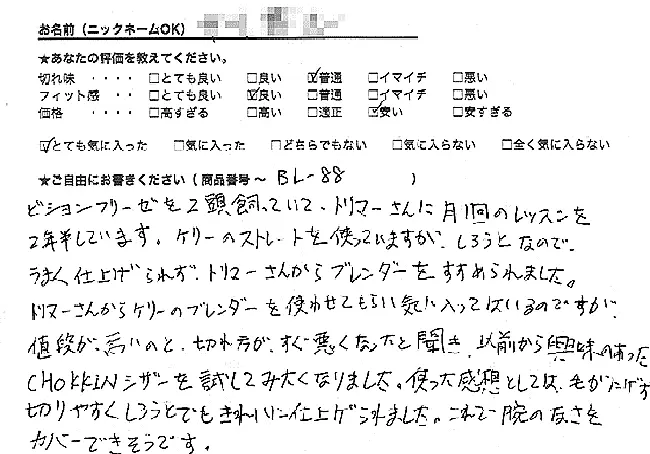 お名前（ニックネームOK）
★あなたの評価を教えてください。
切れ味 ・・・・ □とても良い □良い ☑普通 □イマイチ □悪い
フィット感 ・・・・ □とても良い ☑良い □普通 □イマイチ □悪い
価格 ・・・・ □高すぎる □高い □適正 ☑安い □安すぎる
☑とても気に入った □気に入った □どちらでもない □気に入らない □全く気に入らない
★ご自由にお書きください（商品番号～ BL-88 ）
ビションフリーゼを2頭飼っていて、トリマーさんに月1回のレッスンを
2年半しています。ケリーのストレートを使っていますが、しろうとなので、
うまく仕上げられず、トリマーさんからブレンダーをすすめられました。
トリマーさんからケリーのブレンダーを使わせてもらい気に入ってはいるのですが、
値段が、高いのと、切れ方が、すぐ悪くなったと聞き、以前から興味のあった
CHOKKINシザーを試してみたくなりました。使った感想としては、毛がにげず
切りやすくしろうとでもきれいに仕上げられました。これで腕の なさを
カバーできそうです。